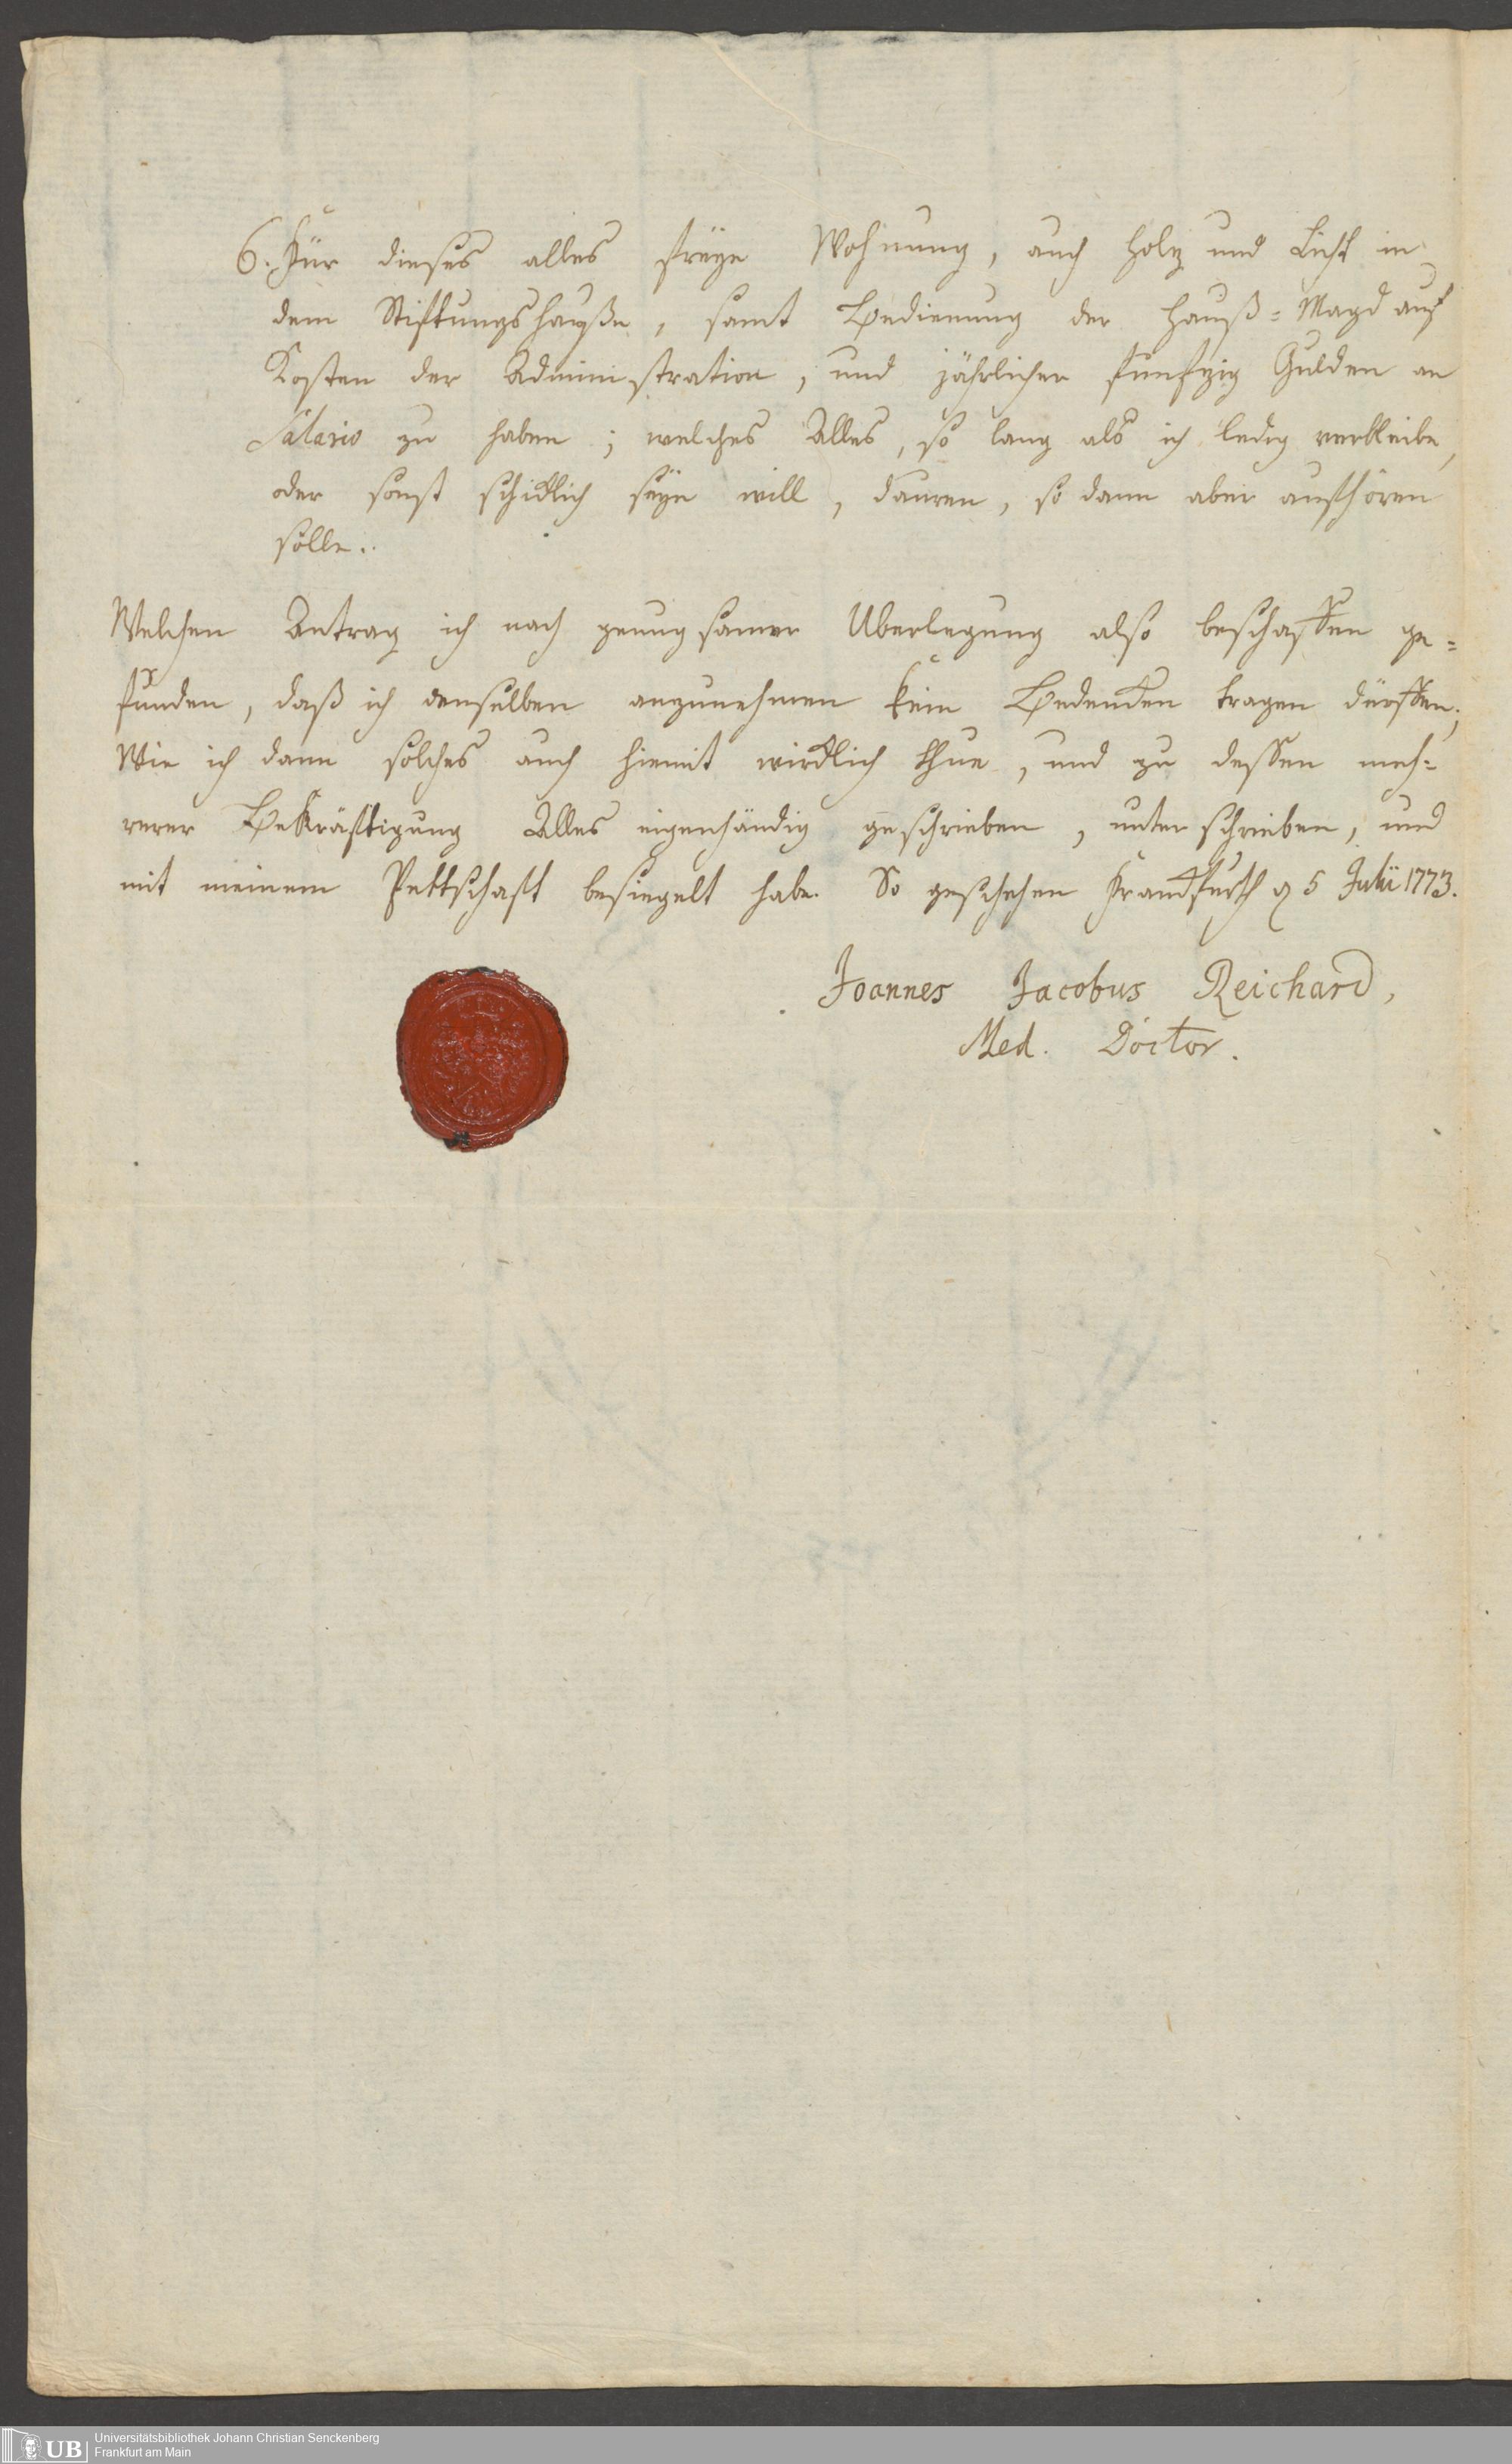 6. Für dieses alles freÿe Wohnung, auch Holz und Licht in
dem Stiftungshauße, samt Bedienung der Hauß=Magd auf
Kosten der Administration, und jährlicher funfzig Gulden an
Salario zu haben; welches Alles, so lang als ich ledig verbleibe,
oder sonst schicklich seÿn will, dauren, so dann aber aufhören
solle.
Welchen Antrag ich nach genugsamer Uberlegung also beschaffen ge=
funden, daß ich denselben anzunehmen kein Bedencken tragen dörffen;
Wie ich dann solches auch hiemit wircklich thue, und zu dessen meh=
rerer Bekräftigung Alles eigenhändig geschrieben, unterschrieben, und
mit meinem Pettschaft besiegelt habe. So geschehen Franckfurth d 5 Julii 1773.
Joannes Jacobus Reichard,
Med. Doctor.
UB
Universitätsbibliothek Johann Christian Senckenberg
Frankfurt am Main